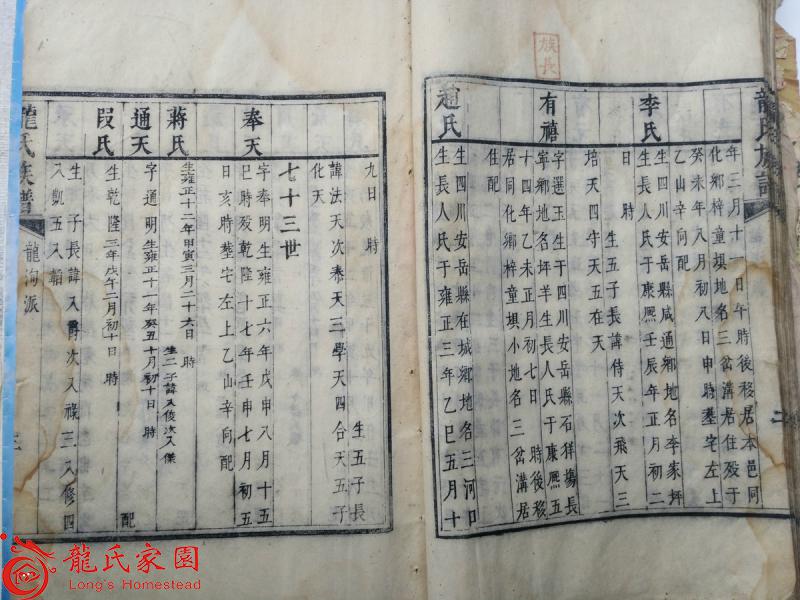 族長
龍氏族譜
年二月十一日午時後移居本邑同
化鄉梓童垻地名三岔溝居住歿于
癸未年八月初八日申時塟宅左上
乙山辛向配
李氏
生四川安岳縣咸通鄉地名李家坪
生長人氏于康熙壬辰年正月初二
日 時 生五子長諱侍天次飛天三
培天四守天五在天
有禧
字選玉生于四川安岳縣石徉塲長
寧鄉地名坪羊生長人氏于康熙五
十四年乙未正月初七日 時後移
居同化鄉梓童垻小地名三岔溝居
住配
趙氏
生四川安岳縣在城鄉地名三河口
生長人氏于雍正三年乙巳五月十
二
九日 時 生五子長
諱法天次奉天三學天四合天五子
化天
七十三世
奉天
字奉明生雍正六年戊申八月十五
巳時歿乾隆十七年壬申七月初五
日亥時塟宅左上乙山辛向配
蔣氏
生雍正十二年甲寅三月二十六日 時 生二子諱入俊次入傑
通天
字通明生雍正十一年癸丑十月初十日 時 配
段氏
生乾隆三年戊午二月初十日 時
生 子長諱入爵次入祿三入修四
入凱五入韜
龍氏族譜
龍洵派
三
龍氏家園
Long's Homestead